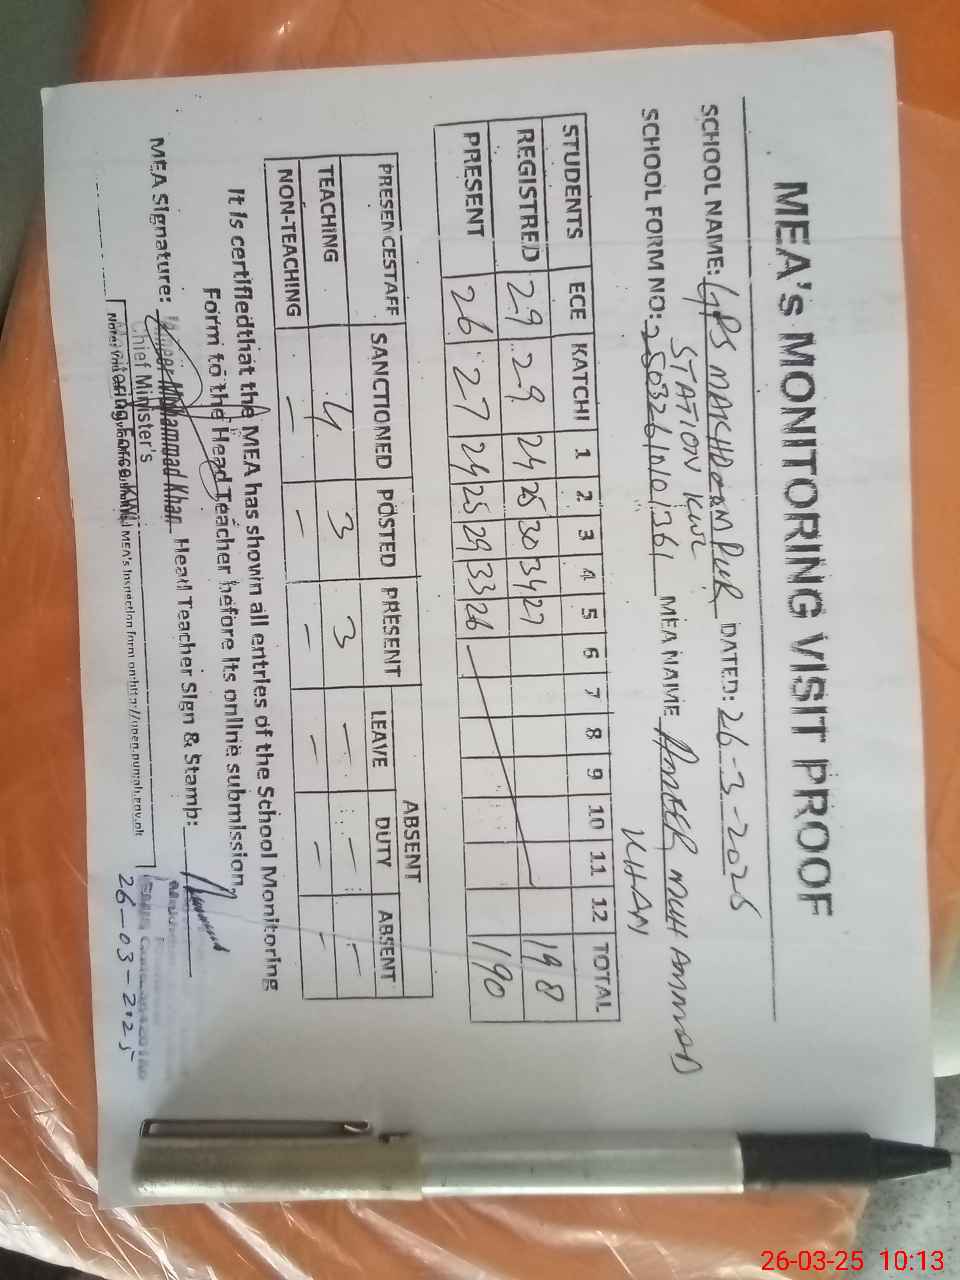 MEA's MONITORING VISIT PROOF
SCHOOL NAME: GPS MAKHDOOM PUR DATED: 26-3-2025
STATION KWL
SCHOOL FORM NO: MEA NAME AMEER MUHAMMAD
KHAN
STUDENTS ECE KATCHI 1 2 3 4 5 6 7 8 9 10 11 12 TOTAL
REGISTRED 29 29 24 25 30 34 27 198
PRESENT 26 27 24 25 29 33 26 190
PRESENCESTAFF SANCTIONED POSTED PRESENT ABSENT
LEAVE DUTY ABSENT
TEACHING 4 3 3 - - -
NON-TEACHING - - - - - -
It is certifiedthat the MEA has shown all entries of the School Monitoring
Form to the Head Teacher before its online submission.
MEA Signature: Ameer Mohammad Khan Head Teacher Sign & Stamp:
Chief Minister's
Monitoring Force KWL
MEA's Inspection form on
26-03-2025
26-03-25 10:13